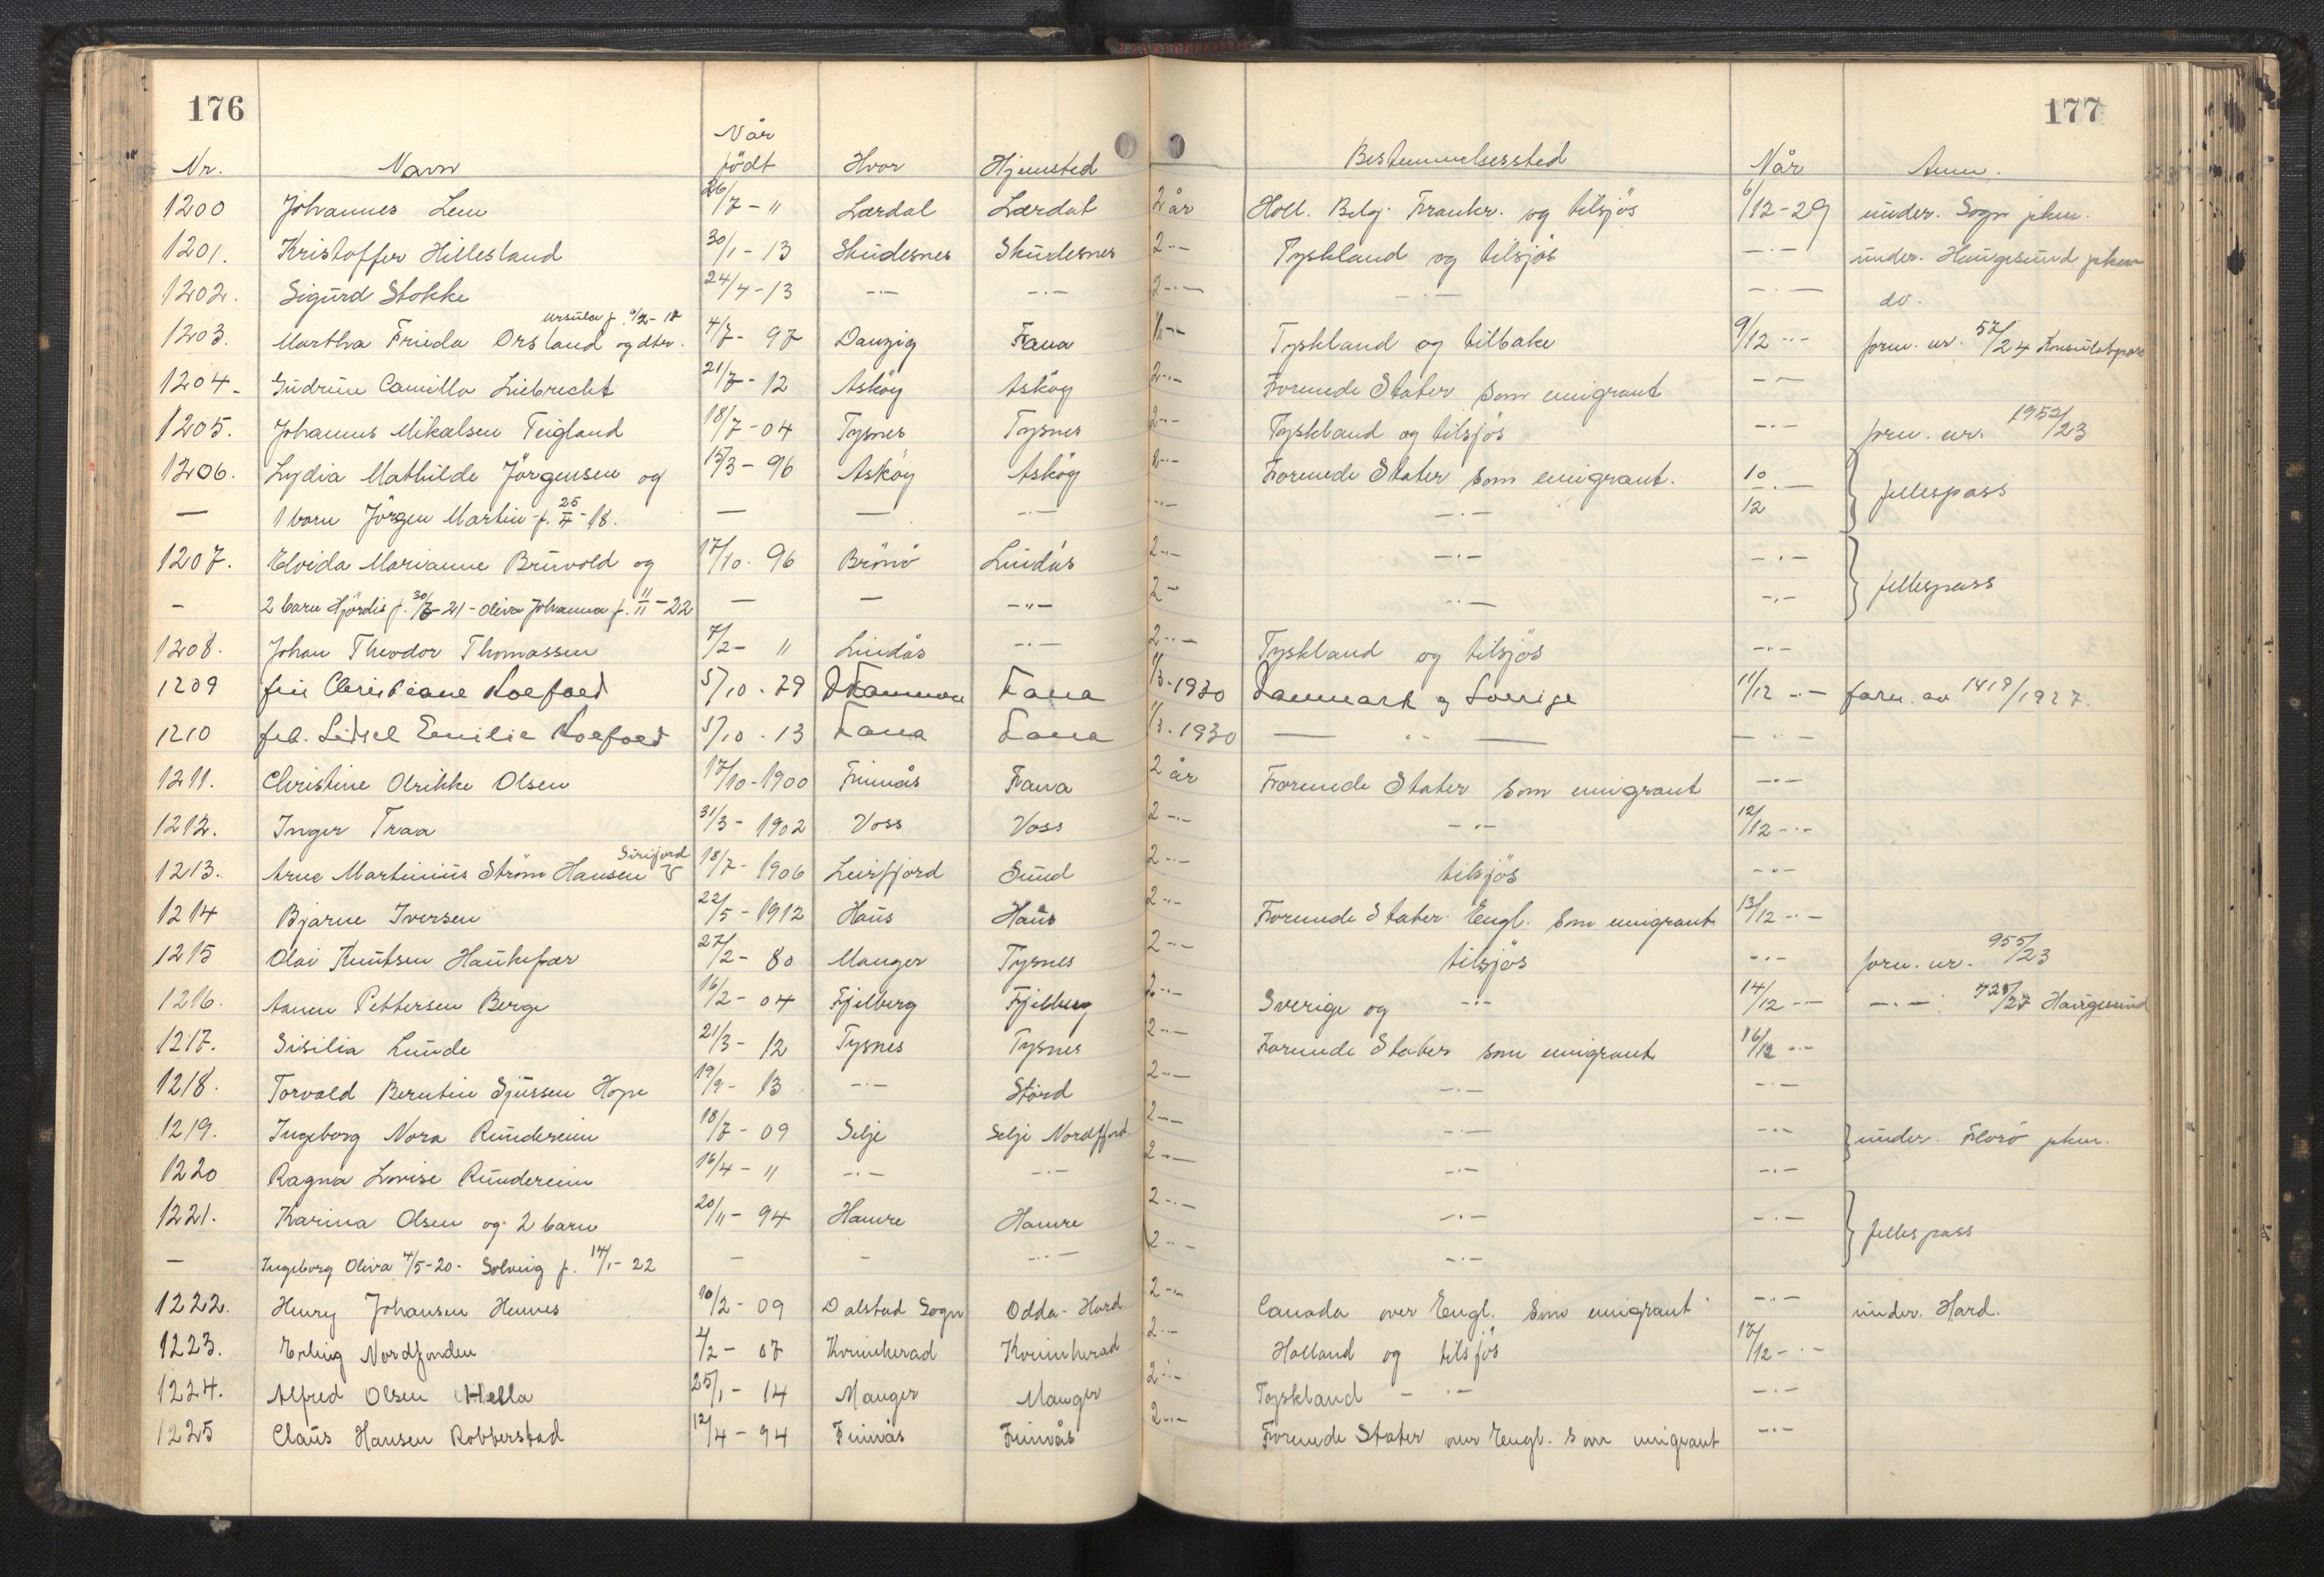 176
177
Nr. Navn Når født Hvor Hjemsted Bestemmelsessted Når Anm.
1200 Johannes Lem 26/7 - 11 Lærdal Lærdal 2 år Holl. Belg. Frankr. og tilsjös 6/12-29 under. Sogn pkm.
1201. Kristoffer Hillesland 30/1 - 13 Skudesnes Skudesnes 2 -·- Tyskland og tilsjös -·- under. Haugesund pkm
1202. Sigurd Stokke 24/4-13 -·- -·- 2 -·- -·- -·- do.
1203. Martha Frieda Orsland og dtr. Ursula f. /2-18 4/7- 97 Danzig Fana -·- Tyskland og tilbake 9/12 -·- forn. nr. 57/24 Konsulatpass
1204. Gudrun Camilla Liebrecht 21/7- 12 Asköy Asköy 2 -·- Forenede Stater som emigrant -·-
1205. Johannes Mikalsen Teigland 18/7-04 Tysnes Tysnes 2 -·- Tyskland og tilsjös -·- forn. nr. 1952/23
1206. Lydia Mathilde Jörgensen og 15/3- 96 Asköy Asköy 2 -·- Forenede Stater som emigrant. 10/12 -·- } fellespass
— 1 barn Jörgen Martin f. 25/4-18. — — -·- -·- -·-
1207. Elvida Marianne Bruvold og 17/10. 96 Brönö Lindås 2 -·- -·- -·- } fellespass
- 2 barn Hjördis f. 30/6-21 - Oliva Johanna f. 11/11-22 — — -"- 2 - -·- -·-
1208. Johan Theodor Thomassen 7/2- 11 Lindås -·- 2 -·- Tyskland og tilsjös -·-
1209 fru Christiane Koefoed 5/10 . 79 Fana 1/3-1930 Danmark og Sverige 11/12 -·- forn. av 1419/1927.
1210 frk. Emilie Koefoed 5/10 . 13 Fana Fana 1/3. 1930 — " — — · ·
1211. Christine Olrikke Olsen 17/10-1900 Finnås Fana 2 år Forenede Stater som emigrant -·-
1212. Inger Traa 31/3- 1902 Voss Voss 2 -·- -·- 12/12 -·-
1213. Arne Martinius Ström Hansen Sirifjord 18/7- 1906 Leirfjord Sund 2 -·- tilsjös -·-
1214 Bjarne Iversen 22/5-1912 Haus Haus 2 -·- Forenede Stater Engl. som emigrant 13/12 -·-
1215 Olai Knutsen Haukefær 27/2- 80 Manger Tysnes 2 -·- tilsjös -·- forn. nr. 955/23
1216. Pettersen Berge 16/2- 04 Fjelberg Fjelberg 2 -·- Sverige og -·- 14/12 -·- -·- 728/27 Haugesund
1217. Sisilia Lunde 21/3- 12 Tysnes Tysnes 2 -·- Forenede Stater som emigrant 16/12 -·-
1218. Torvald Berntin Sjursen Hope 19/9- 13 -·- Stord 2 -·- -·- -·-
1219. Ingeborg Nora Rundereim 18/7- 09 Selje Selje Nordfjord 2 -·- -·- -·- } under. Florö pkm.
1220 Ragna Lovise Rundereim 16/4- 11 -·- -·- 2 -·- -·- -·-
1221. Karina Olsen og 2 barn 20/11- 94 Hamre Hamre 2 -·- -·- -·- } fellespass
— Ingeborg Oliva 4/5-20- Solveig f. 14/1-22 - - -·- 2 -·- -·-
1222. Henry Johansen Hennes 10/2- 09 Dalstad Sogn Odda- Hard. 2 -·- Canada over Engl. som emigrant -·- under. Hard.
1223. Erling Nordfonden 4/2- 07 Kvinnherad Kvinnherad 2 -·- Holland og tilsjös 17/12 -·-
1224. Alfred Olsen Hella 25/1- 14 Manger Manger 2 -·- Tyskland - ·- -·-
1225 Claus Hansen Robberstad 12/4- 94 Finnås Finnås 2 -·- Forenede Stater over Engl. som emigrant -·-